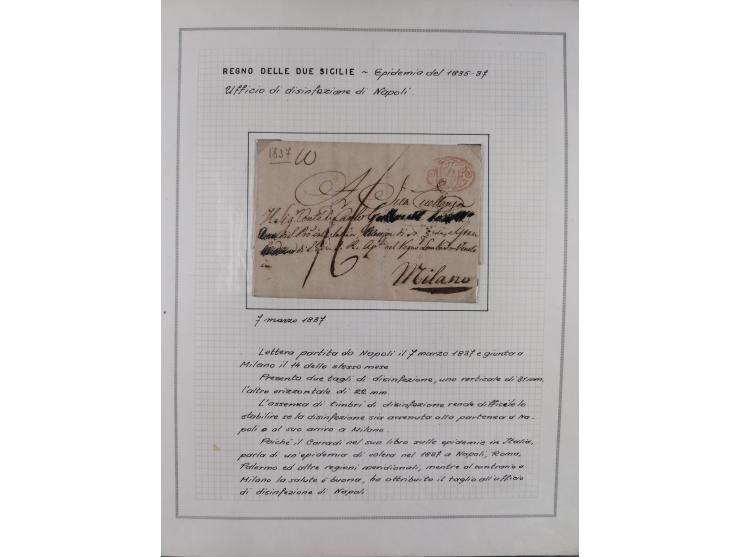 REGNO DELLE DUE SICILIE ~ Epidemia del 1835-37
Ufficio di disinfezione di Napoli.
1837
A Sua Eccellenza
Milano
7 marzo 1837
Lettera partita da Napoli il 7 marzo 1837 e giunta a
Milano il 14 dello stesso mese
Presenta due tagli di disinfezione, uno verticale di 31 mm.
l'altro orizzontale di 22 mm.
L'assenza di timbri di disinfezione rende difficile lo
stabilire se la disinfezione sia avvenuta alla partenza a Na-
poli o al suo arrivo a Milano.
Poichè il Corradi nel suo libro sulle epidemie in Italia,
parla di un'epidemia di colera nel 1837 a Napoli, Roma,
Palermo ed altre regioni meridionali, mentre al contrario a
Milano la salute è buona, ho attribuito il taglio all'ufficio
di disinfezione di Napoli